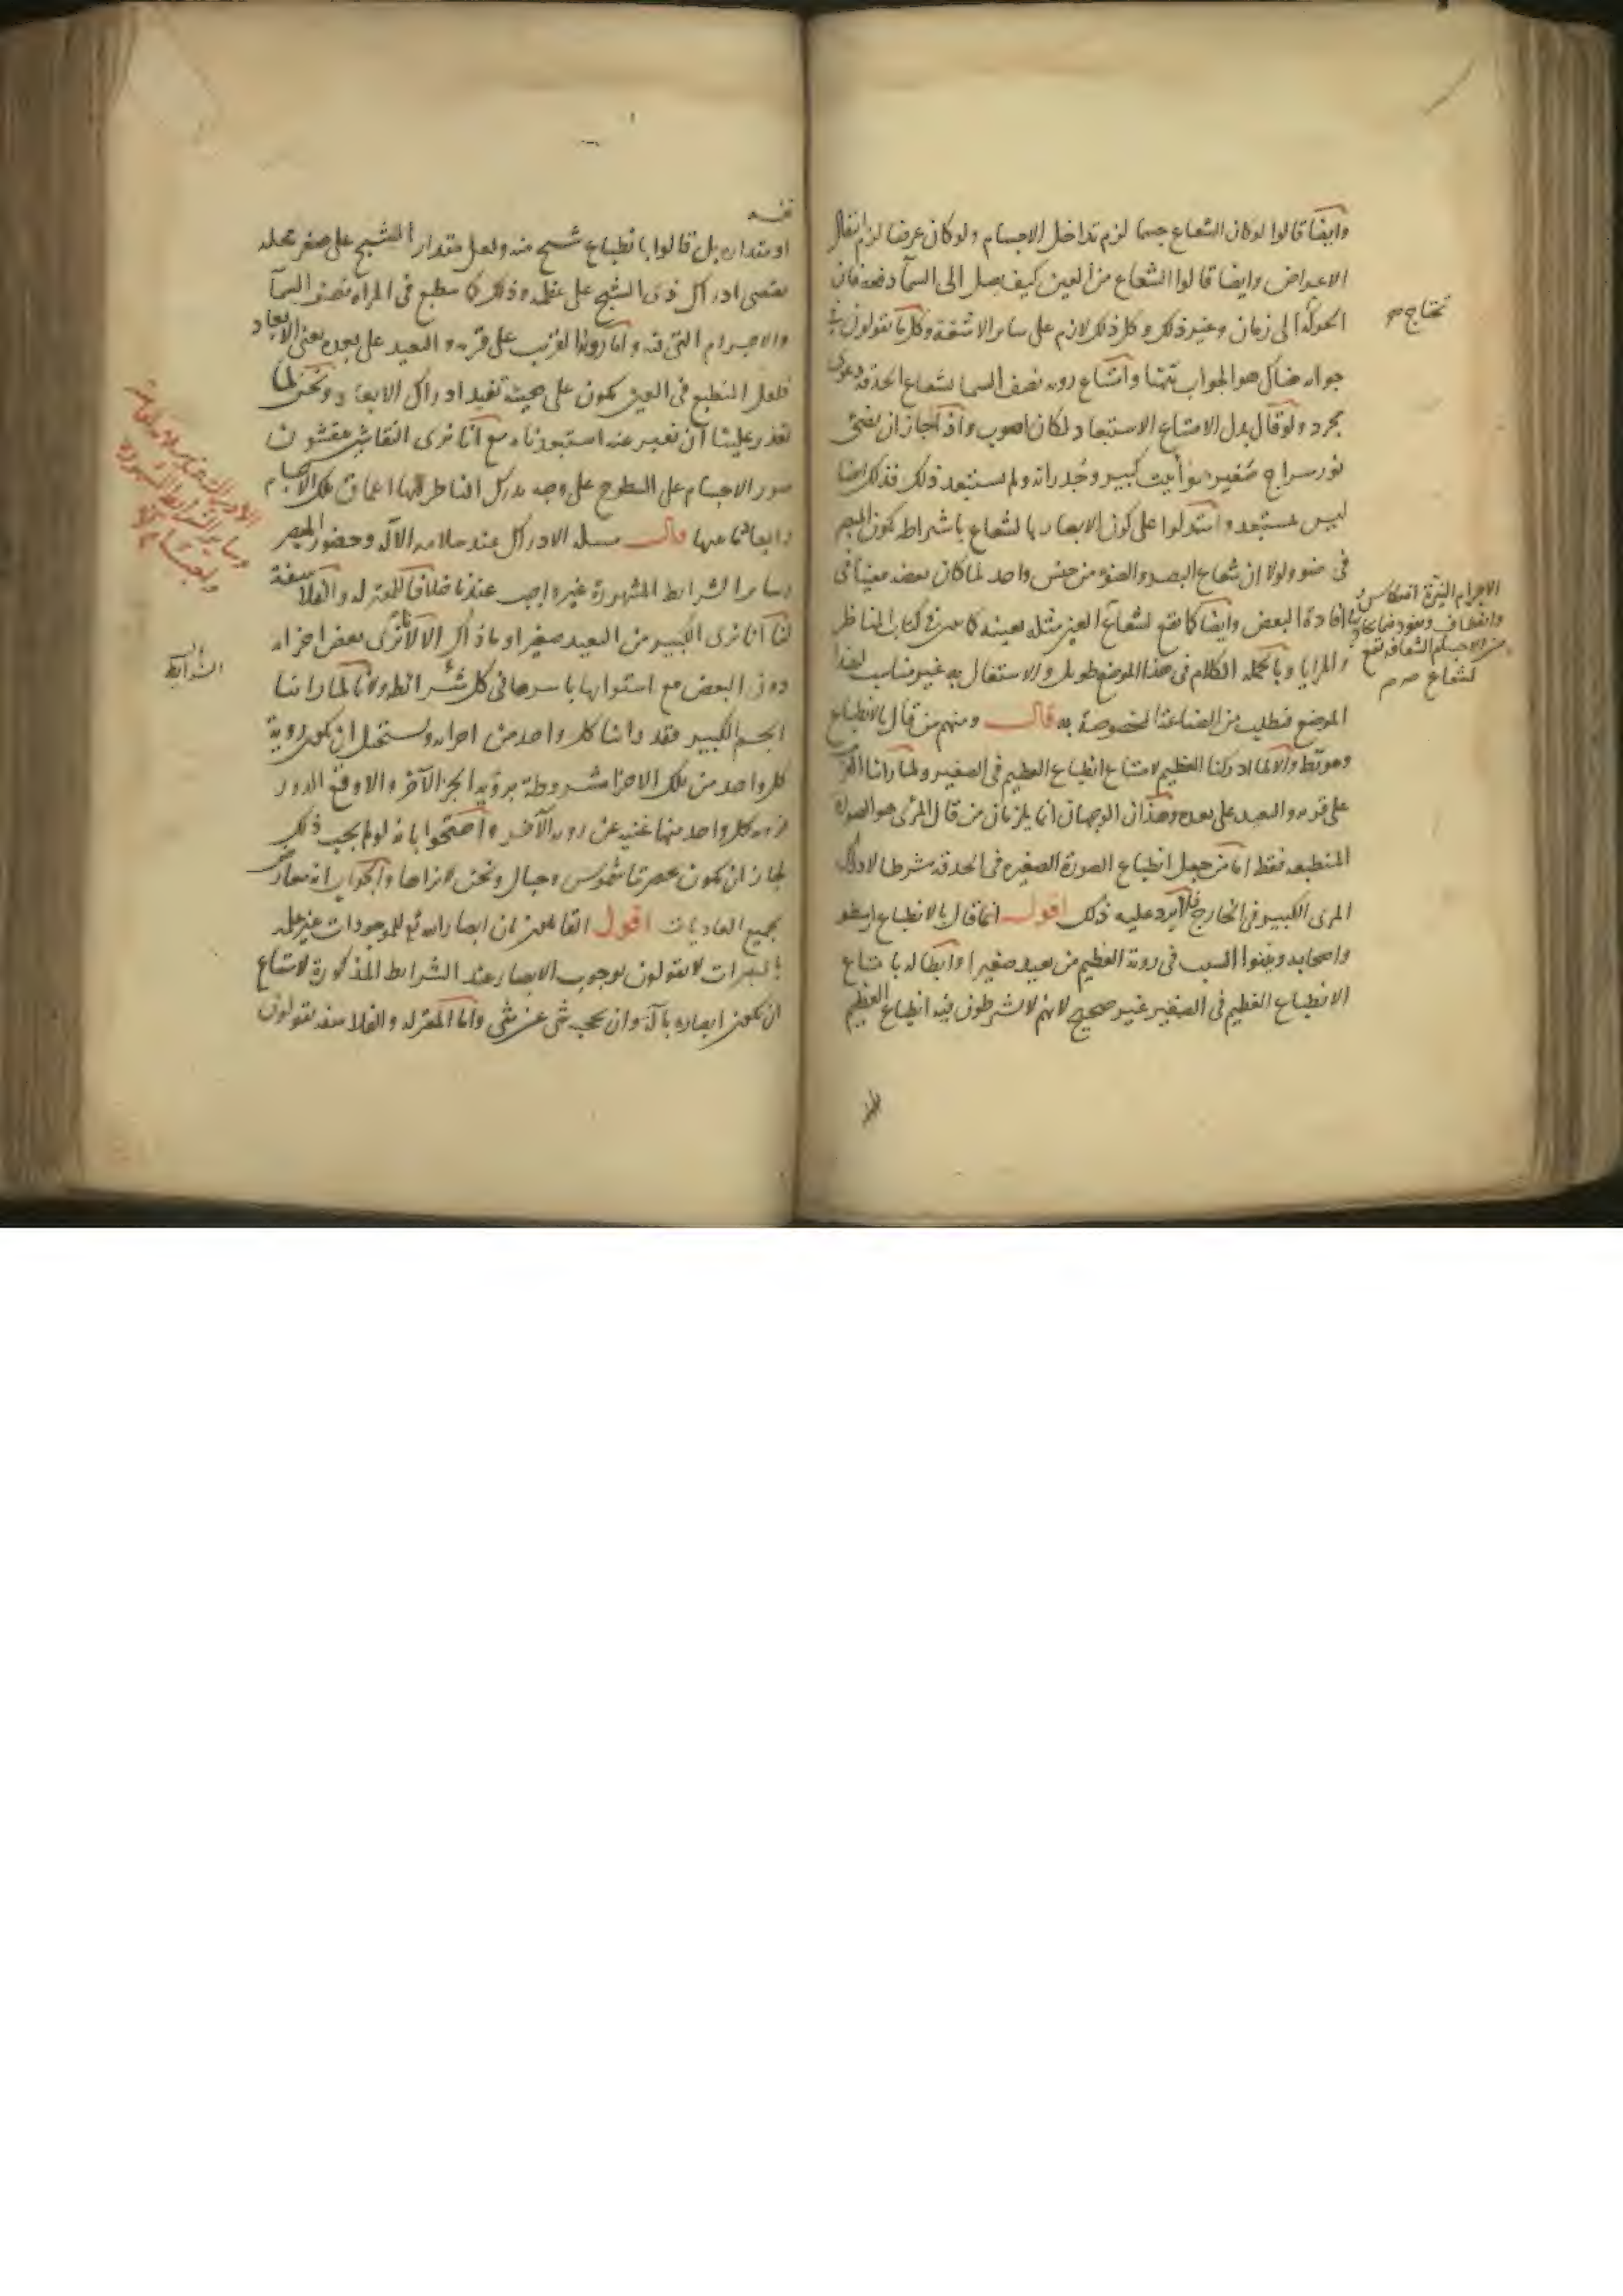 وايضا قالوا لو كان الشعاع جسما لزم تداخل الاجسام ولو كان عرضا لزم انتقال
الاعراض وايضا قالوا الشعاع من العين كيف يصل الى السماء دفعة فان
الحركة الى زمان وغير ذلك وكل ذلك لازم على ساير الاشعة وكل ما يقولون في
تحتاج
جوابه هناك هو الجواب ههنا وامتناع رويه نصف السما بشعاع الحدقة دعوى
مجرد ولو قال بدل الامتناع الاستبعاد لكان اصوب واذا جاز ان يضئ
نور سراج صغير هوا بيت كبير وجدرانه ولم يستبعد ذلك فذلك ايضا
ليس بمستبعد واستدلوا على كون الابصار بالشعاع باشتراط كون المبصر
في ضوء ولولا ان شعاع البصر والضوء من جنس واحد لما كان بعضه معينا في
افادة البعض وايضا كما يقع لشعاع العين مثله بعينه كما بين في كتاب المناظر
الاجرام النيرة انعكاس
وانعطاف ونفوذ فيما يحاذيها
من الاجسام الشفافة تقع
لشعاع
والمرايا وبالجملة الكلام في هذا الموضع طويل والاشتغال به غير مناسب لهذا
الموضع فيطلب من الصناعة المخصوصة به قال ومنهم من قال بالانطباع
وهو بط والا لما ادركنا العظيم لامتناع انطباع العظيم في الصغير ولما راينا القريب
على قربه والبعيد على بعده وهذان الوجهان انما يلزمان من قال المرئي هو الصورة
المنطبعه فقط اما من جعل انطباع الصورة الصغيره في الحدقه شرطا لادراك
المرى الكبير في الخارج فلا يرد عليه ذلك اقول انما قال بالانطباع ارسطو
واصحابه وبينوا السبب في روية العظيم من بعيد صغيرا وابطاله بامتناع
الانطباع العظيم في الصغير غير صحيح لانهم لا يشرطون فيه انطباع العظيم
نفسه
او مقداره بل قالوا بانطباع شبح منه ولعل مقدار الشبح على صغر محله
يقتضى ادراك ذى الشبح على عظمه وذلك كما ينطبع في المراه نصف السماء
والاجرام التي فيه واما روية القريب على قربه والبعيد على بعده يعنى الابعاد
فلعل المنطبع في العين يكون على هيئة تفيد ادراك الابعاد ونحن لما
تعذر علينا ان نعبر عنه استبعدناه مع انا نرى النقاش ينقشون
صور الاجسام على السطوح على وجه يدرك الناظر اليها اعماق تلك الاجسام
وابعادها عنها قال مسله الادراك عند سلامه الآله وحضور المبصر
وساير الشرايط المشهورة غير واجب عندنا خلافا للمعتزله والفلاسفة
لنا انا نرى الكبير من البعيد صغيرا وما ذاك الا لانا نرى بعض اجزائه
دون البعض مع استوايها باسرها في كل الشرائط ولانا لما راينا
الشرايط
الجسم الكبير فقد راينا كل واحد من اجزائه ويستحيل ان يكون روية
كل واحد من تلك الاجزا مشروطة بروية الجز الآخر والا وقع الدور
فرويه كل واحد منها غنيه عن رويه الآخر واحتجوا بانه لو لم يجب ذلك
لجاز ان يكون بحضرتنا شموس وجبال ونحن لا نراها والجواب انه معارض
بجميع العاديات اقول القايلون بان ابصار الله تع للموجودات غير علمه
بالمبصرات لا يقولون بوجوب الابصار عند الشرايط المذكورة لامتناع
ان يكون ابصاره بآلة وان يحجبه شى عن شى واما المعتزله والفلاسفه يقولون